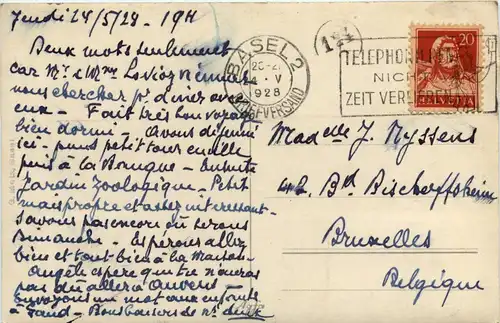 Jeudi 24/5/28 - 19H
Deux mots seulement
car Mr & Mme Lovioz viennent
nous chercher pr dîner avec
eux - Fait très bon voyage
bien dormi - Avons déjeuné
ici - puis petit tour en ville
puis à la Banque - Ensuite
Jardin Zoologique - Petit
mais propre et assez intéressant -
Savons pas encore où serons
Dimanche - Espérons allez
bien et tout bien à la maison -
Angèle espère que tu n'auras
pas dû aller à Anvers -
Envoyons un mot aux enfants
à Gand - Bons baisers de ns deux
BASEL 2
24 V
1928
BRIEFVERSAND
TELEPHONIEREN
NICHT
ZEIT VERLIEREN
20
HELVETIA
Madelle J. Nyssens
42, Bd Bischoffsheim
Bruxelles
Belgique